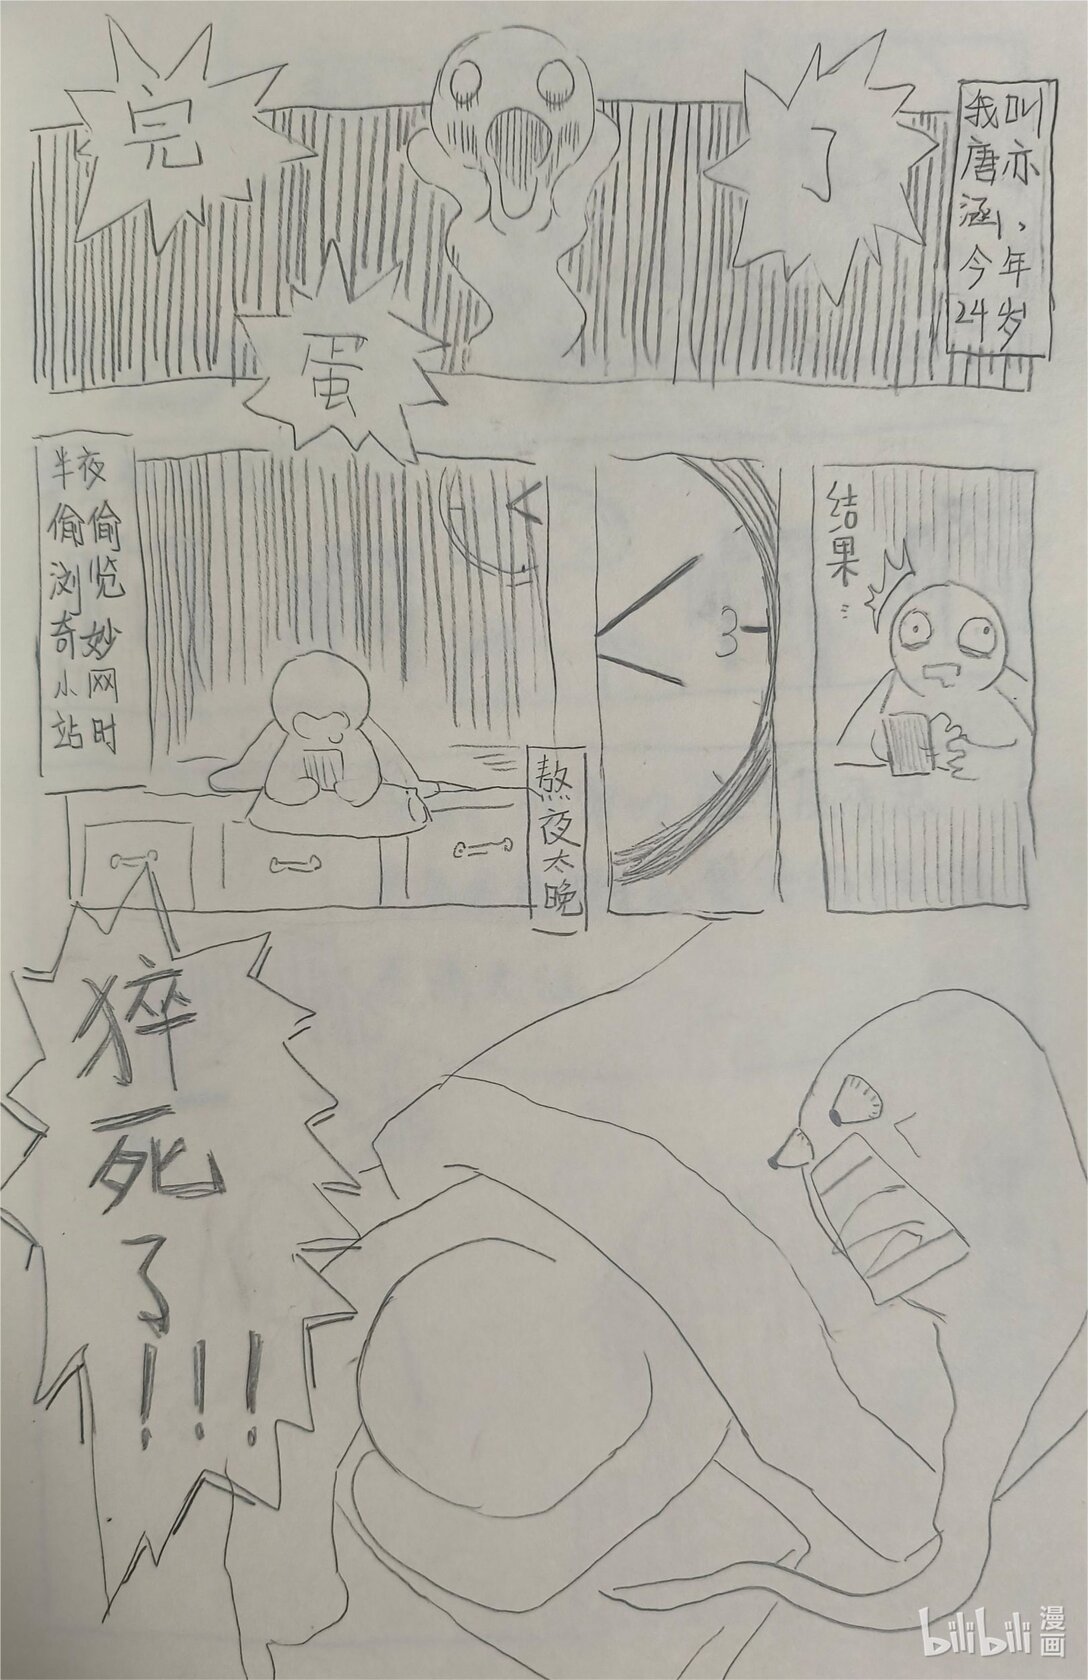 完
蛋
了
我叫
唐亦
涵，
今年
24岁
半夜
偷偷
浏览
奇妙
小网
站时
熬夜太晚
3
结果…
猝死了！！！
bilibili 漫画